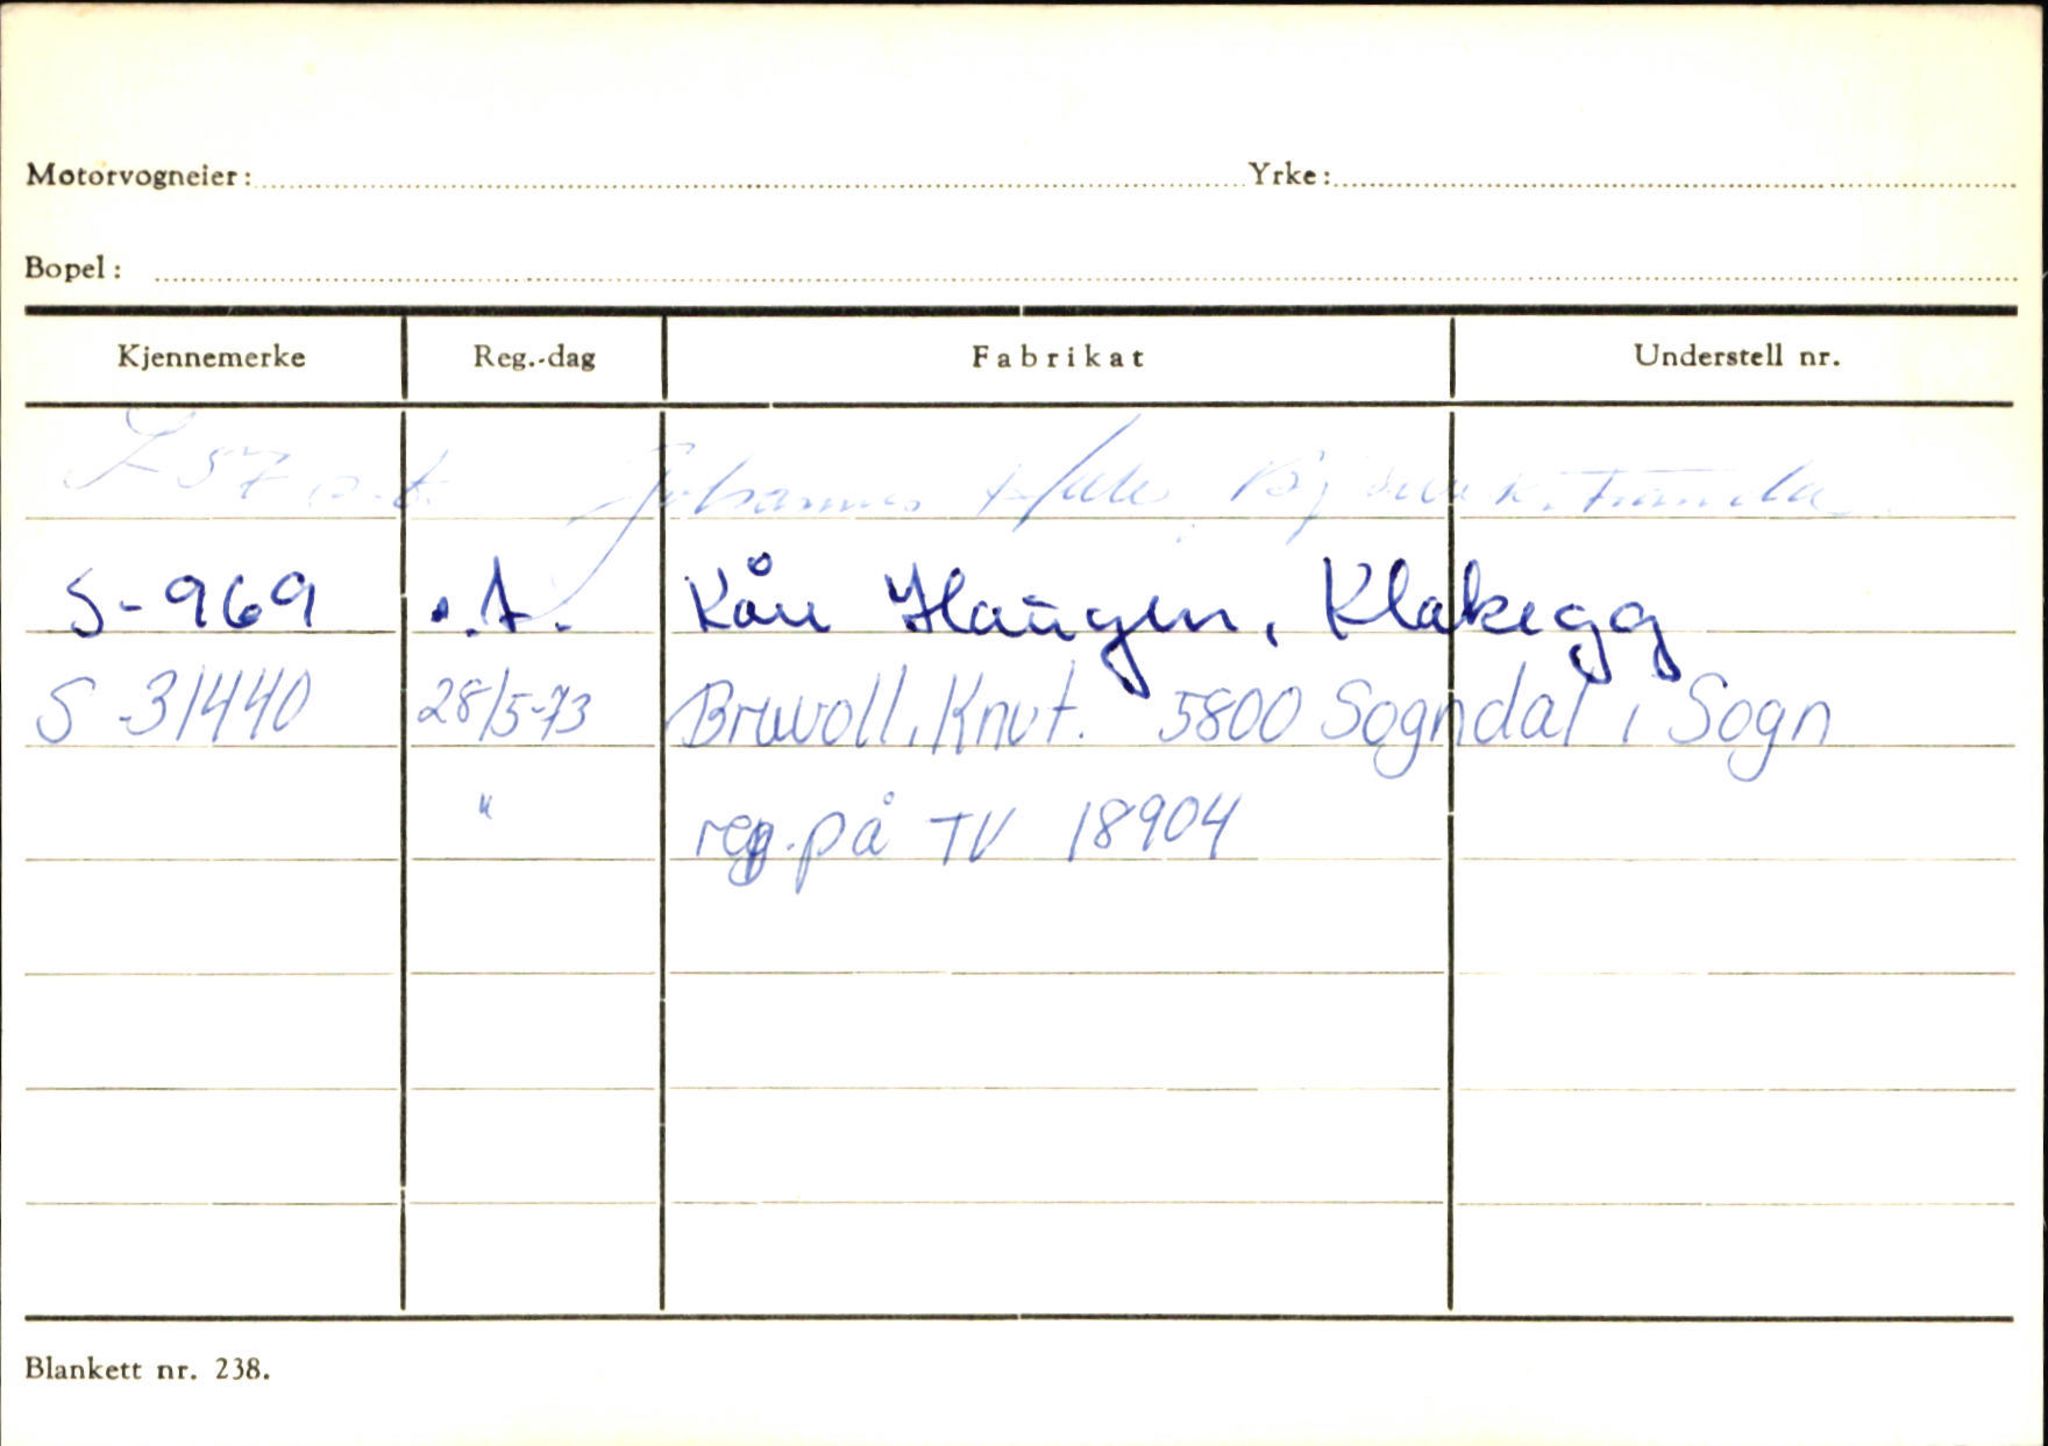 Motorvogneier: Yrke:
Bopel:
Kjennemerke Reg.-dag Fabrikat Understell nr.
57 Johannes
S-969 Kåre Haugen, Klakegg
S-31440 28/5-73 Bruvoll, Knut. 5800 Sogndal i Sogn
" reg. på TV 18904
Blankett nr. 238.